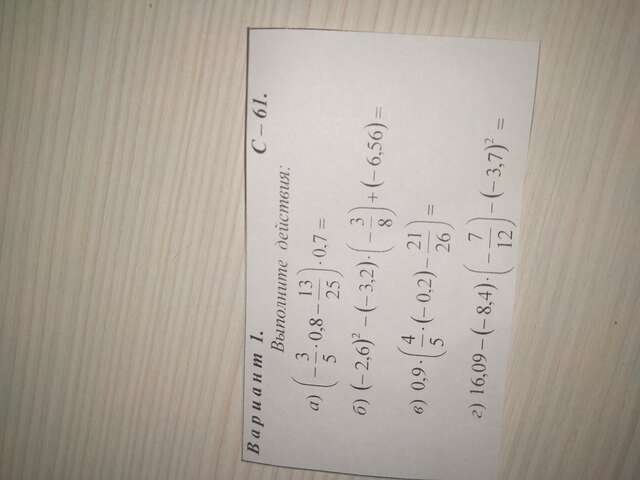 Вариант 1. С – 61.
Выполните действия:
а) (−3/5 · 0,8 − 13/25) · 0,7 =
б) (−2,6)² − (−3,2) · (−3/8) + (−6,56) =
в) 0,9 · (4/5 · (−0,2) − 21/26) =
г) 16,09 − (−8,4) · (−7/12) − (−3,7)² =